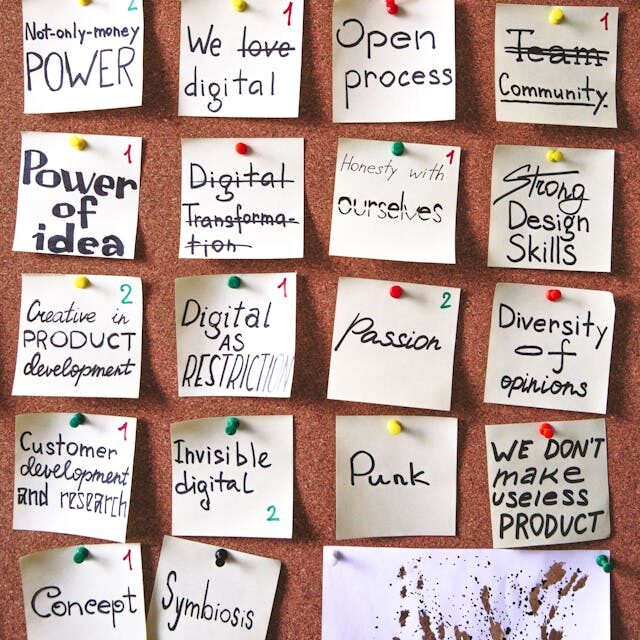 2
Not-only-money
POWER
1
We love
digital
Open
process
1
Team
Community.
1
Power
of
idea
Digital
Transforma-
tion
1
Honesty with
ourselves
Strong
Design
Skills
2
Creative in
PRODUCT
development
1
Digital
AS
RESTRICTION
2
Passion
Diversity
of
opinions
1
Customer
development
and research
Invisible
digital
2
Punk
WE DON'T
make
useless
PRODUCT
1
Concept
Symbiosis